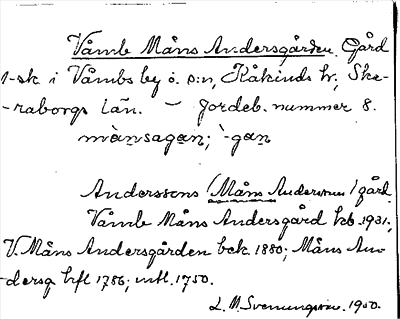 Våmb Måns Andersgården. Gård
1-sk. i Våmbs by o. s:n, Kåkinds hr, Ska-
-raborgs län. — Jordeb. nummer 8.
mànsagan; `-gan
Anderssons (Måns Andersson) gård
Våmb Måns Andersgård kb. 1931;
V. Måns Andersgården bek. 1880; Måns An-
-dersg hfl 1786; mtl. 1750.
L. M. Svenungsson. 1950.